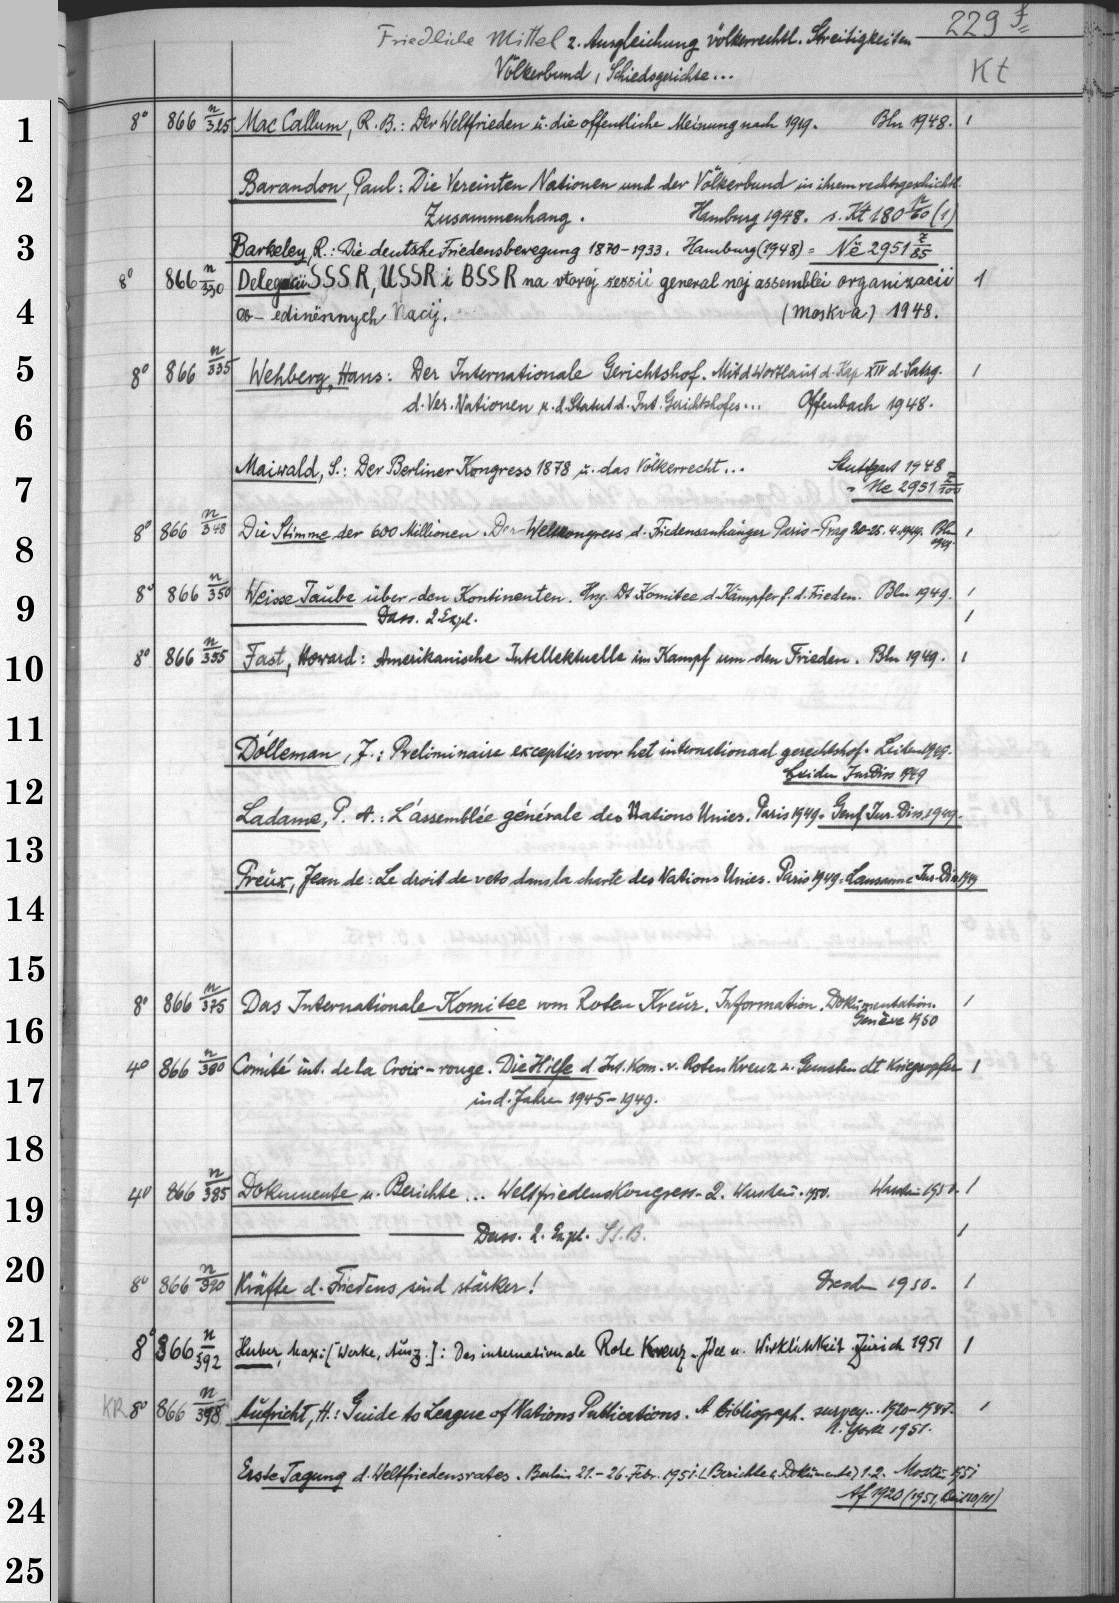 Friedliche Mittel z. Ausgleichung völkerrechtl. Streitigkeiten 229 f
Völkerbund, Schiedsgerichte... Kt
1 8° 866 n/325 Mac Callum, R. B.: Der Weltfrieden u. die öffentliche Meinung nach 1919. Bln 1948. 1
2 Barandon, Paul: Die Vereinten Nationen und der Völkerbund in ihrem rechtsgeschichtl.
Zusammenhang. Hamburg 1948. s. Kt 180 n/60 (1)
3 Barkeley, R.: Die deutsche Friedensbewegung 1870-1933. Hamburg (1948) = Në 2951 z/85
8° 866 n/330 Delegacii SSSR, USSR i BSSR na vtoroj sessii general'noj assemblei organizacii 1
4 Ob-edinënnych Nacij. (Moskva) 1948.
5 8° 866 n/335 Wehberg, Hans: Der Internationale Gerichtshof. Mit d Wortlaut d. Kap XIV d. Satzg. 1
6 d. Ver. Nationen u. d. Statut d. Int. Gerichtshofes... Offenbach 1948.
7 Maiwald, S.: Der Berliner Kongress 1878 u. das Völkerrecht... Stuttgart 1948
= Ne 2951 z/100
8 8° 866 n/348 Die Stimme der 600 Millionen. Der Weltkongress d. Friedensanhänger Paris-Prag 20-25. 4. 1949. Bln 1949. 1
9 8° 866 n/350 Weisse Taube über den Kontinenten. Hrg. Dt Komitee d. Kämpfer f. d. Frieden. Bln 1949. 1
Dass. 2. Expl. 1
10 8° 866 n/355 Fast, Howard: Amerikanische Intellektuelle im Kampf um den Frieden. Bln 1949. 1
11
Dólleman, J.: Preliminaire excepties voor het internationaal gerechtshof. Leiden 1949.
12 Leiden Jur Diss 1949
Ladame, P. A.: L'assemblée générale des Nations Unies. Paris 1949. Genf Jur. Diss. 1949.
13 Preux, Jean de: Le droit de veto dans la charte des Nations Unies. Paris 1949. = Lausanne Jur. Diss 1949
14
15
16 8° 866 n/375 Das Internationale Komitee vom Roten Kreuz. Information. Dokumentation. 1
Genève 1950
17 4° 866 n/380 Comité int. de la Croix-rouge. Die Hilfe d Int. Kom. v. Roten Kreuz z. Gunsten dt Kriegsopfer 1
in d. Jahren 1945-1949.
18
19 4° 866 n/385 Dokumente u. Berichte ... Weltfriedenskongress. 2. Warschau. 1950. Warschau 1950. 1
Dass. 2. Expl. 1
20 8° 866 n/390 Kräfte d. Friedens sind stärker! Dresden 1950. 1
21 8° 866 n/392 Huber, Max: [Werke, Ausz.]: Das internationale Rote Kreuz. Idee u. Wirklichkeit. Zürich 1951 1
22 KR 8° 866 n/398 Aufricht, H.: Guide to League of Nations Publications. A bibliograph. survey... 1920-1947. 1
N. York 1951.
23 Erste Tagung d. Weltfriedensrates. Berlin 21.-26. Febr. 1951. (Berichte u. Dokumente) 1.2. 1951
24 Af 1920 (1951, Beil 10/11)
25